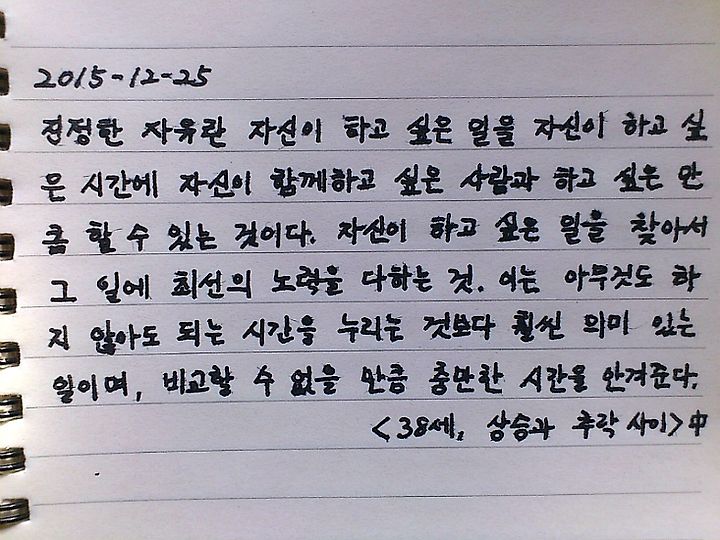 2015-12-25
진정한 자유란 자신이 하고 싶은 일을 자신이 하고 싶
은 시간에 자신이 함께하고 싶은 사람과 하고 싶은 만
큼 할 수 있는 것이다. 자신이 하고 싶은 일을 찾아서
그 일에 최선의 노력을 다하는 것. 이는 아무것도 하
지 않아도 되는 시간을 누리는 것보다 훨씬 의미 있는
일이며, 비교할 수 없을 만큼 충만한 시간을 안겨준다.
<38세, 상승과 추락 사이> 中